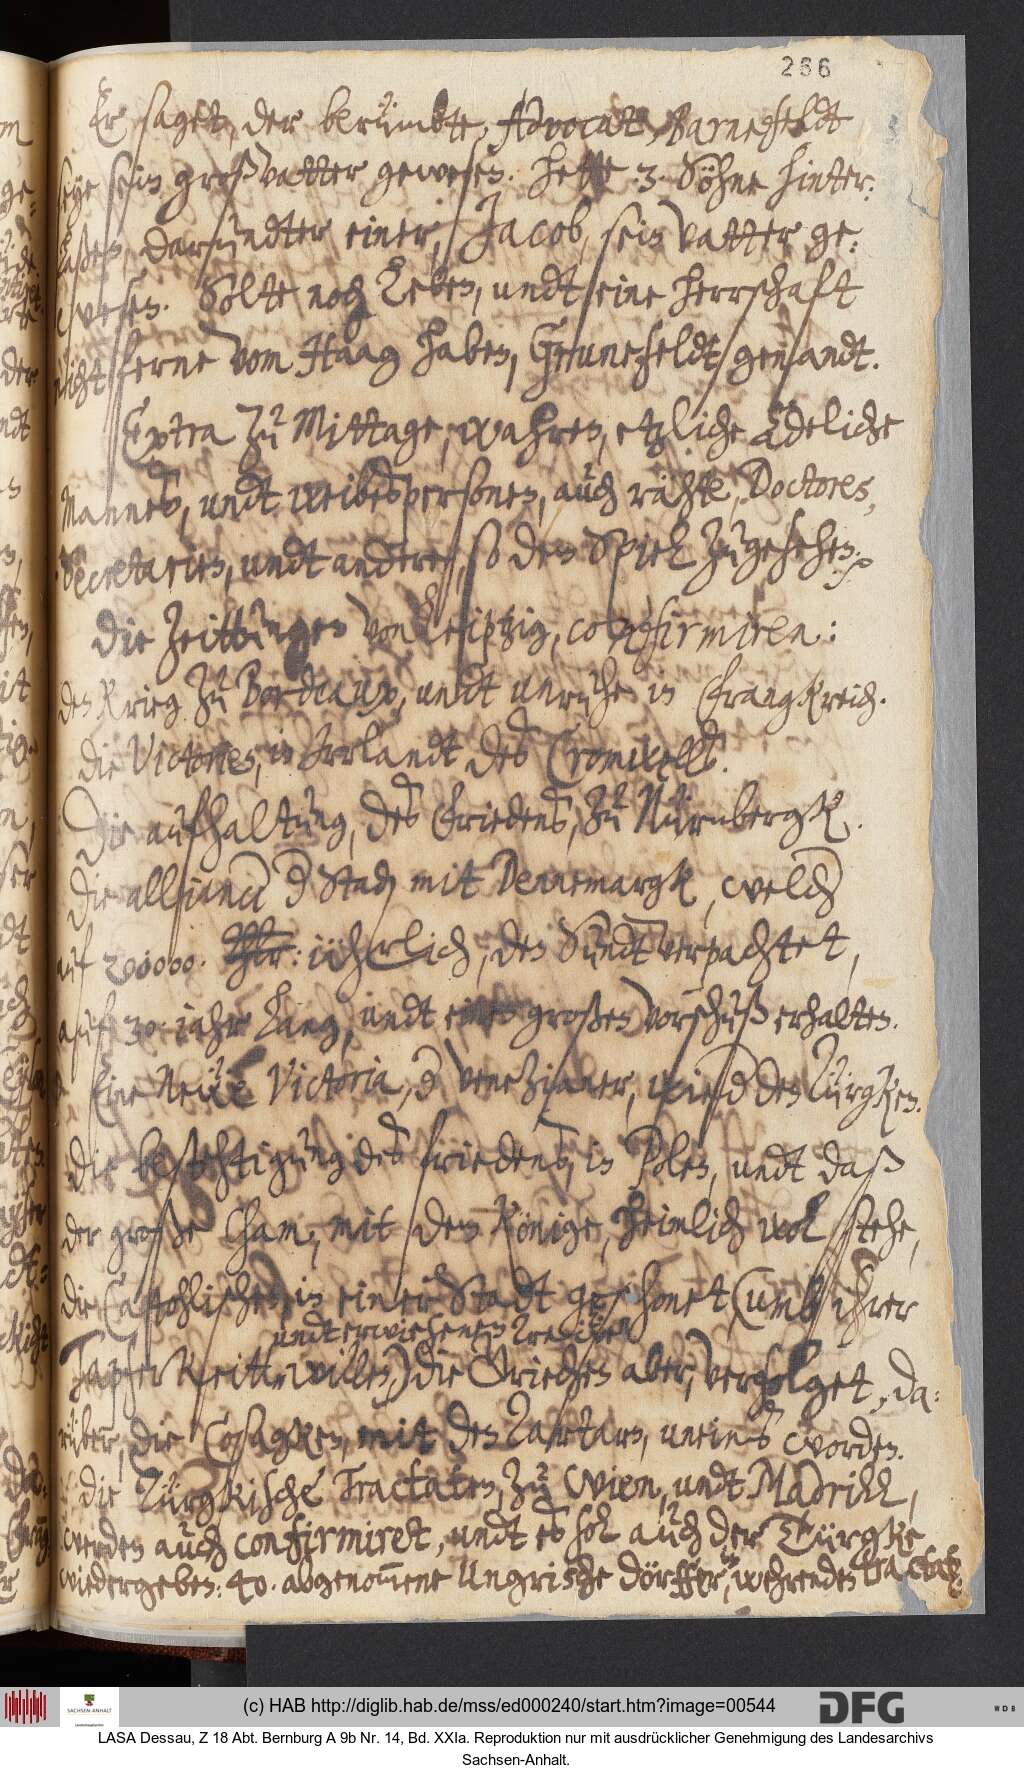 266
Er saget, der berümbte, Advocatt, Barnefeldt
seye sein großvatter gewesen. hette 3. Söhne hinter:
laßen, darundter einer, Jacob, sein vatter ge:
wesen. Solte noch leben, undt eine herrschaft
nicht ferne vom Haag haben, Gruneveldt genandt.
Extra zu Mittage, wahren, etzliche Edeliche
Mannes, undt weibespersonen, auch rähte, Doctores,
Secretarien, undt andtre, so dem Spiel zugesehen.
Die Zeittungen von Leiptzig, confirmiren:
den Krieg zu Bordeaux, undt unruhe in Frangkreich.
die Victorien, in Irrlandt des Cromwells.
Die aufhaltung, des Friedens, zu Nürnbergk.
Die alliance der Stad mit Dennemargk, welche
auf 200000. Thlr: iährlich, den Sundt verpachtet,
auf 30 iahr lang, undt einen großen vorschuß erhalten.
Eine Neue Victoria, der Venezianer, wieder den Türgken.
die bestehtigung des friedens, in Polen, undt daß
der große Cham, mit dem Könige, heimlich wol stehe,
die Catohlischen, in einer Stadt geschonet (umb ihrer
undt erwiesenen
Tapferkeitt willen,) die Griechen aber, verfolget, da:
rüber, die Cosagken, mit den Tartarn, uneins worden.
die Türgkische Tractaten, zu Wien, undt Madrill,
werden auch confirmiret, undt es sol auch der Türgke
wiedergeben: 40. abgenommene Ungrische dörffer, in wehrenden
(c) HAB http://diglib.hab.de/mss/ed000240/start.htm?image=00544
SACHSEN-ANHALT
DFG
WDB
LASA Dessau, Z 18 Abt. Bernburg A 9b Nr. 14, Bd. XXIa. Reproduktion nur mit ausdrücklicher Genehmigung des Landesarchivs
Sachsen-Anhalt.